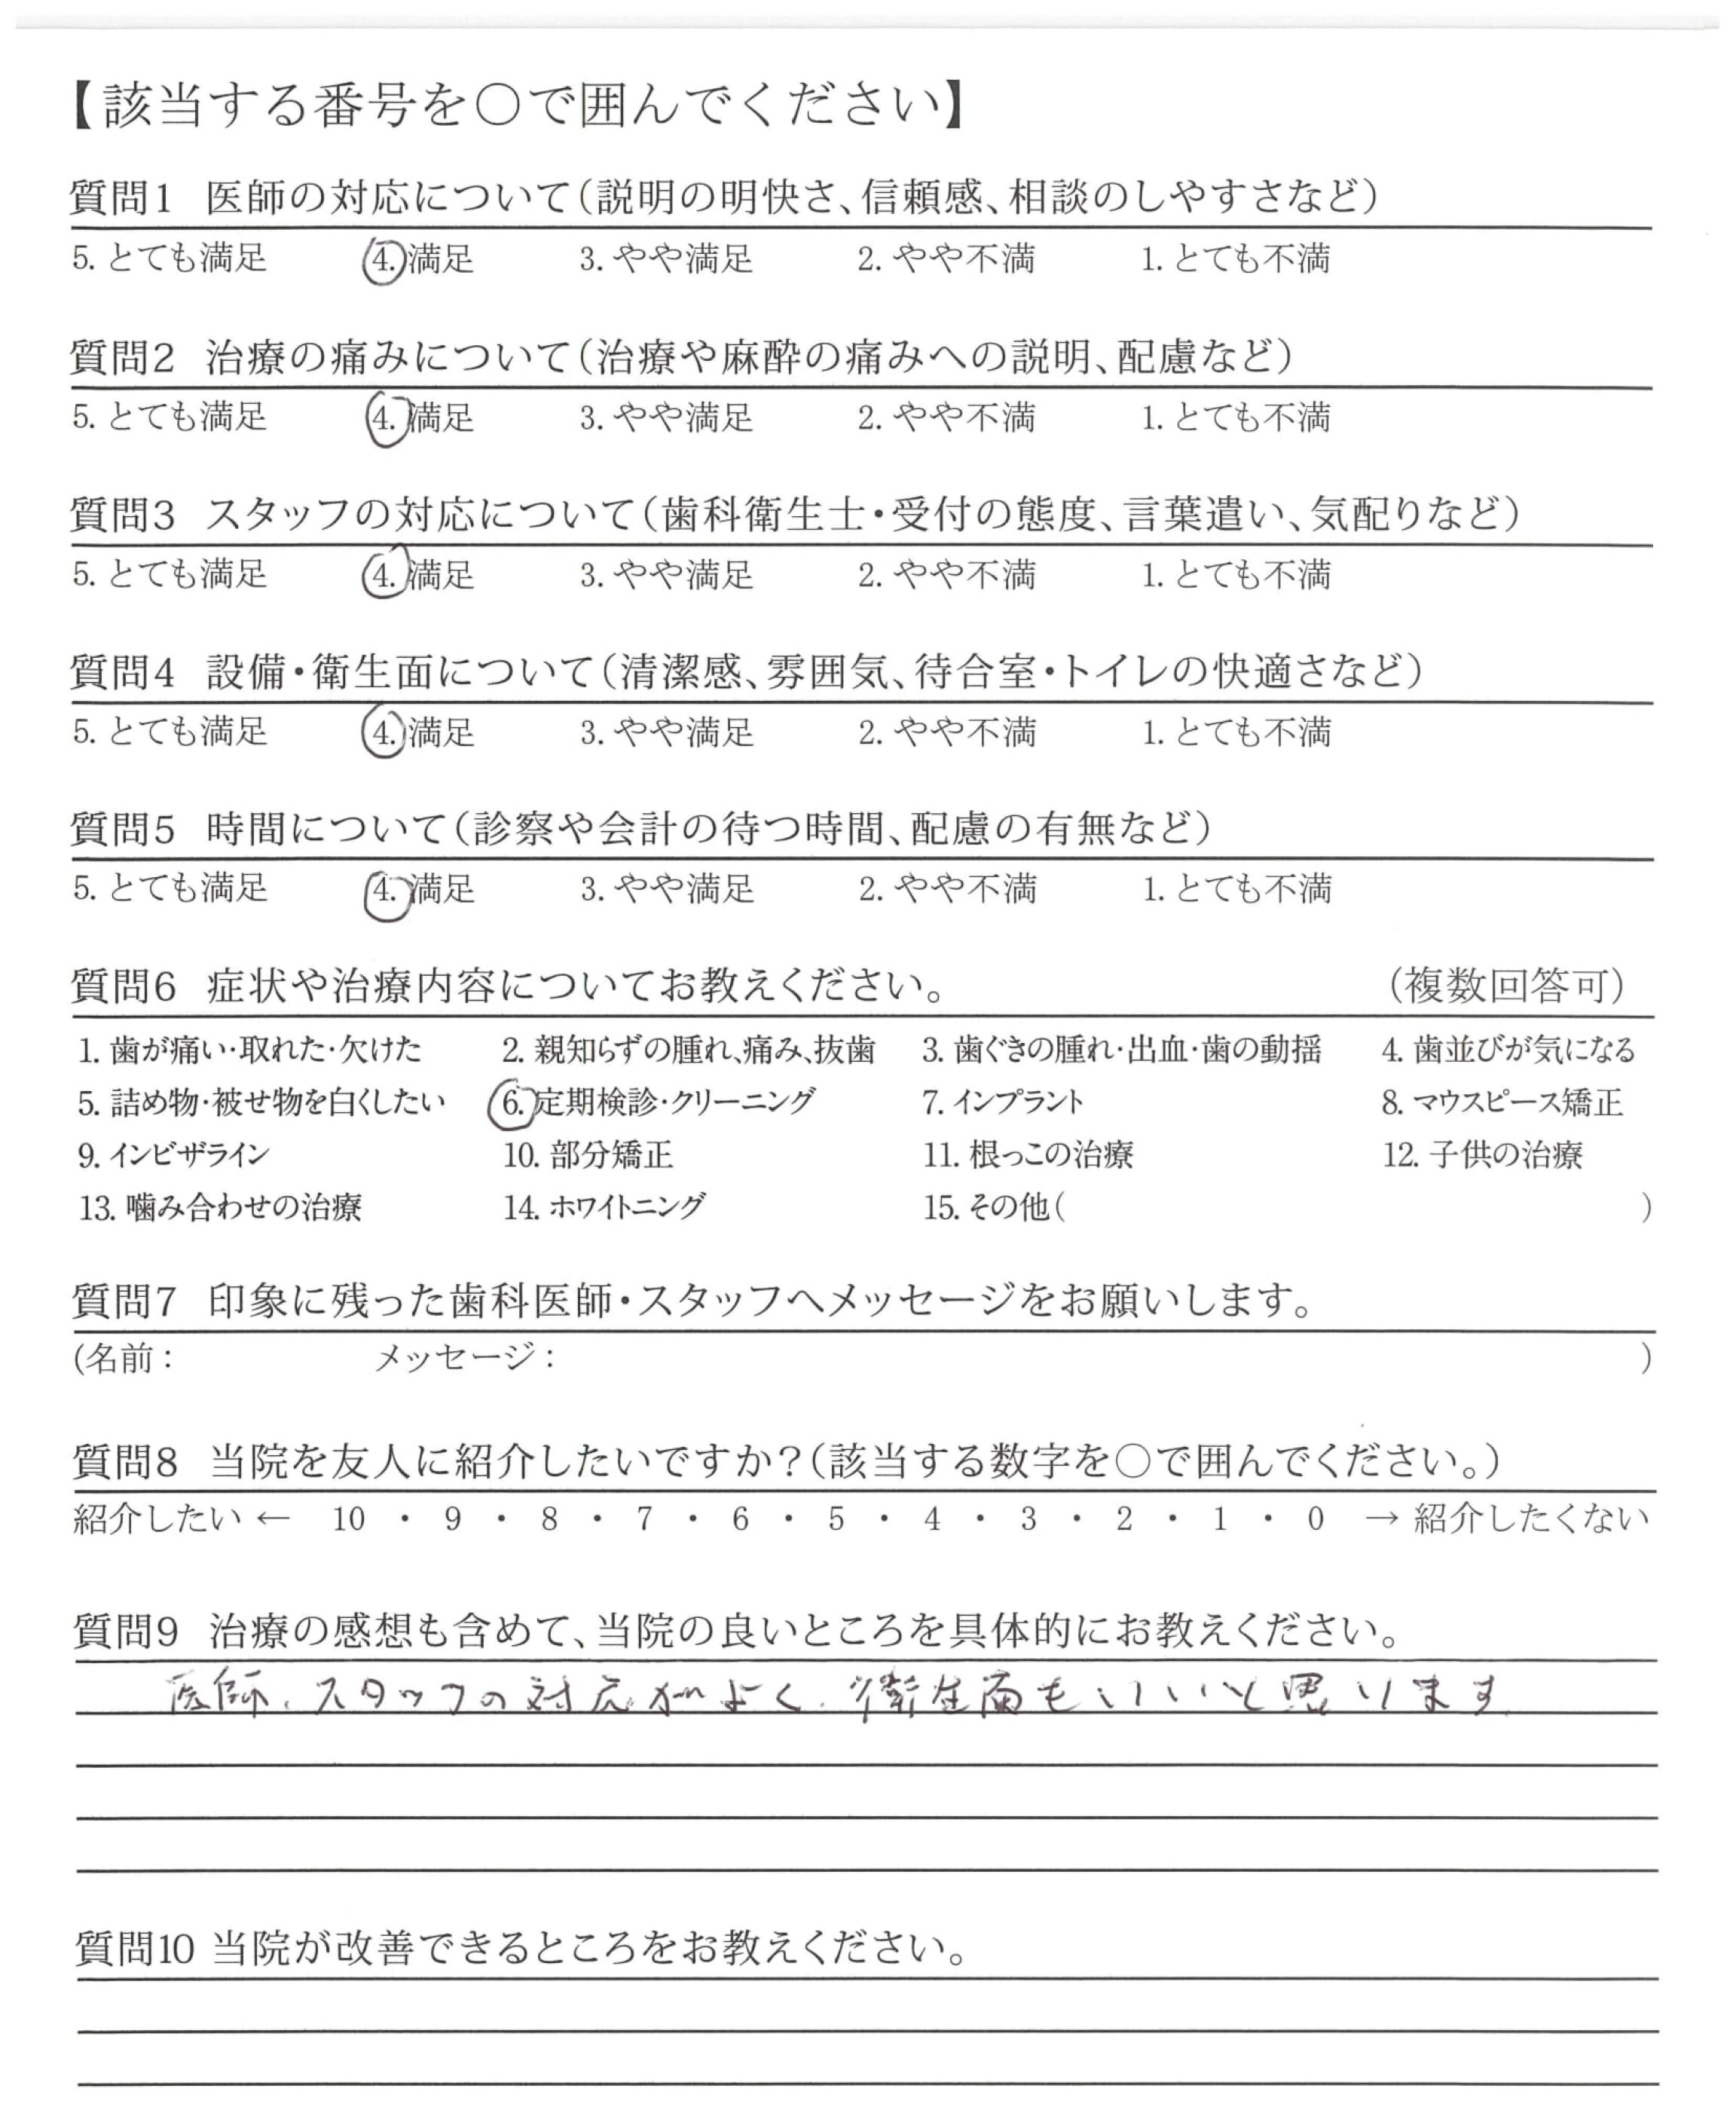 【該当する番号を○で囲んでください】
質問1 医師の対応について(説明の明快さ、信頼感、相談のしやすさなど)
5. とても満足 4. 満足 3. やや満足 2. やや不満 1. とても不満
質問2 治療の痛みについて(治療や麻酔の痛みへの説明、配慮など)
5. とても満足 4. 満足 3. やや満足 2. やや不満 1. とても不満
質問3 スタッフの対応について(歯科衛生士・受付の態度、言葉遣い、気配りなど)
5. とても満足 4. 満足 3. やや満足 2. やや不満 1. とても不満
質問4 設備・衛生面について(清潔感、雰囲気、待合室・トイレの快適さなど)
5. とても満足 4. 満足 3. やや満足 2. やや不満 1. とても不満
質問5 時間について(診察や会計の待つ時間、配慮の有無など)
5. とても満足 4. 満足 3. やや満足 2. やや不満 1. とても不満
質問6 症状や治療内容についてお教えください。 (複数回答可)
1. 歯が痛い・取れた・欠けた 2. 親知らずの腫れ、痛み、抜歯 3. 歯ぐきの腫れ・出血・歯の動揺 4. 歯並びが気になる
5. 詰め物・被せ物を白くしたい 6. 定期検診・クリーニング 7. インプラント 8. マウスピース矯正
9. インビザライン 10. 部分矯正 11. 根っこの治療 12. 子供の治療
13. 噛み合わせの治療 14. ホワイトニング 15. その他( )
質問7 印象に残った歯科医師・スタッフへメッセージをお願いします。
(名前: メッセージ: )
質問8 当院を友人に紹介したいですか?(該当する数字を○で囲んでください。)
紹介したい ← 10 ・ 9 ・ 8 ・ 7 ・ 6 ・ 5 ・ 4 ・ 3 ・ 2 ・ 1 ・ 0 → 紹介したくない
質問9 治療の感想も含めて、当院の良いところを具体的にお教えください。
医師、スタッフの対応がよく、衛生面もいいと思います
質問10 当院が改善できるところをお教えください。